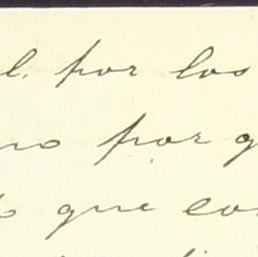 l. por los
no por q
o que con